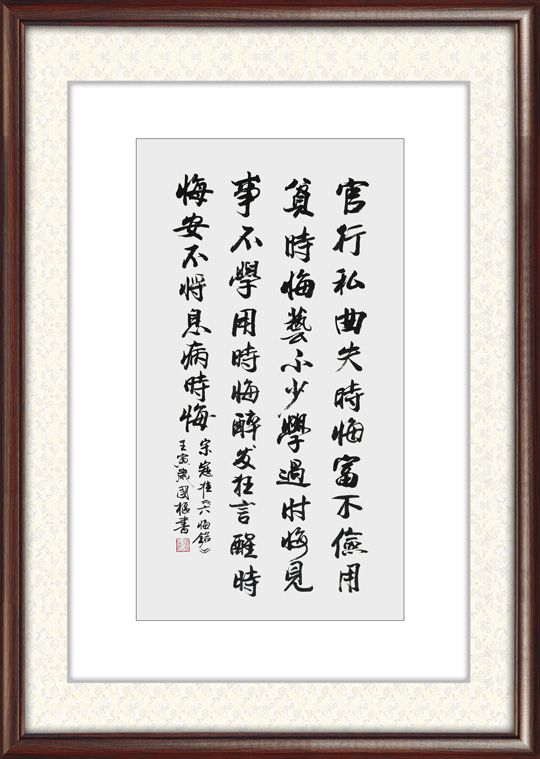 官行私曲失時悔富不儉用
貧時悔藝不少學過时悔見
事不學用時悔醉发狂言醒時
悔安不将息病時悔
宋寇准《六悔銘》
壬寅歲國書